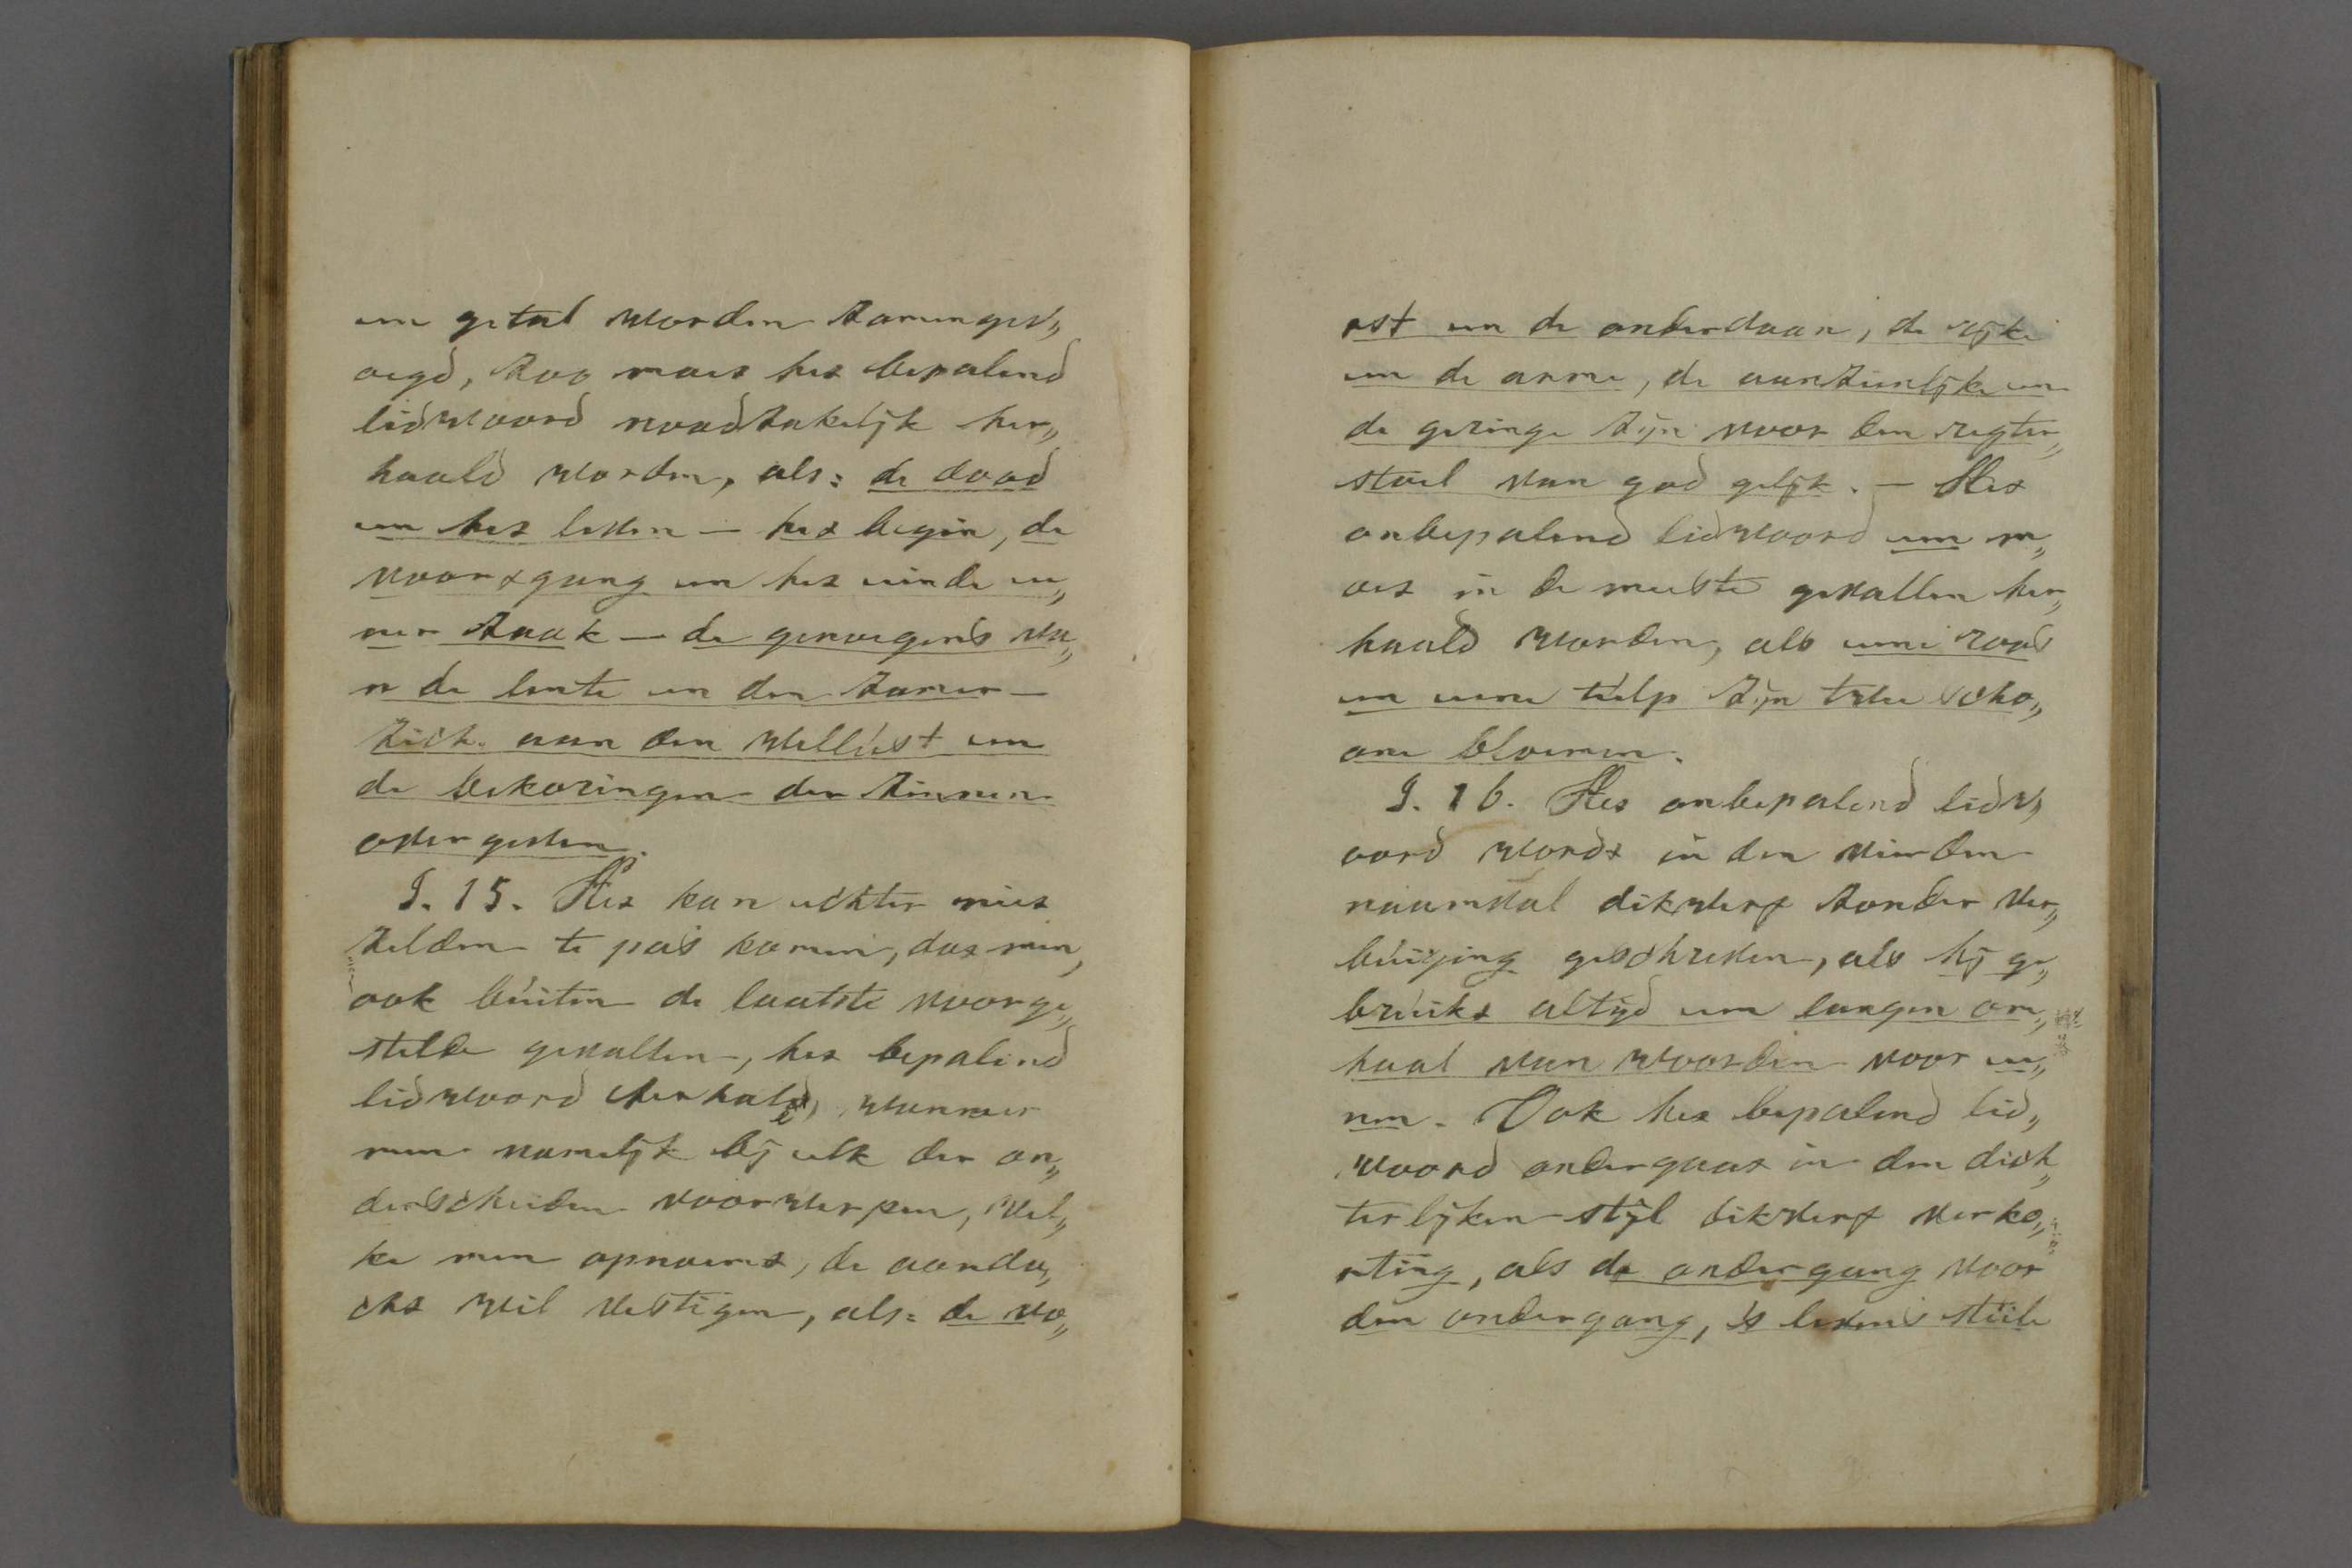 en getal worden zamengev„
oegd, zoo moet het bepalend
lidwoord noodzakelijk her„
haald worden, als: de dood
en het leven — het begin, de
voortgang en het einde ee„
ner zaak — de genoegens va„
n de lente en den zomer —
zich aan den wellust en
de bekoringen der zinnen
overgeven.
§. 15. Het kan echter niet
zelden te pas komen, dat men,
ook buiten de laatste voorge„
stelde gevallen, het bepalend
lidwoord herhale, wanneer
men namelijk bij elk der on„
derscheiden voorwerpen, wel„
ke men opnoemt, de aanda„
cht wil vestigen, als: de vo„
rst en de onderdaan, de rijke
en de arme, de aanzienlijke en
de geringe zijn voor den regter„
stoel van god gelijk. — Het
onbepalend lidwoord een m„
oet in de meeste gevallen her„
haald worden, als eene roos
en eene tulp zijn twee scho„
one bloemen.
§. 16. Het onbepalend lidw„
oord wordt in den vierden
naamval dikwerf zonder ver„
buiging geschreven, als hij ge„
bruikt altijd een langen om„
haal van woorden voor ee„
nen. Ook het bepalend lid„
woord ondergaat in den dich„
terlijken stijl dikwerf verko„
rting, als de ondergang voor
den ondergang, 's levens stiile